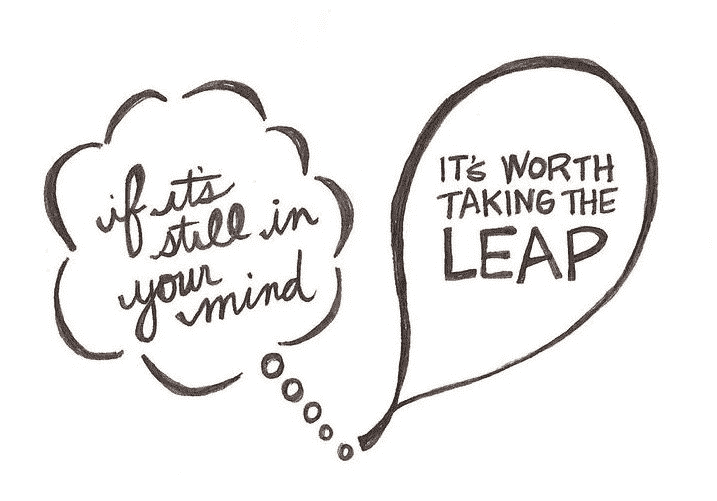 if it's
still in
your
mind
IT'S WORTH
TAKING THE
LEAP